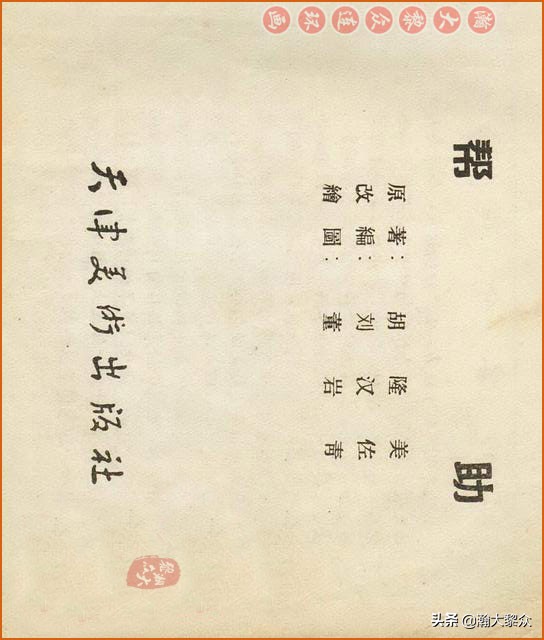 帮助
原著：胡隆美
改編：刘汉佐
繪圖：董岩青
天津美術出版社
瀚大黎众连环画
头条 @瀚大黎众